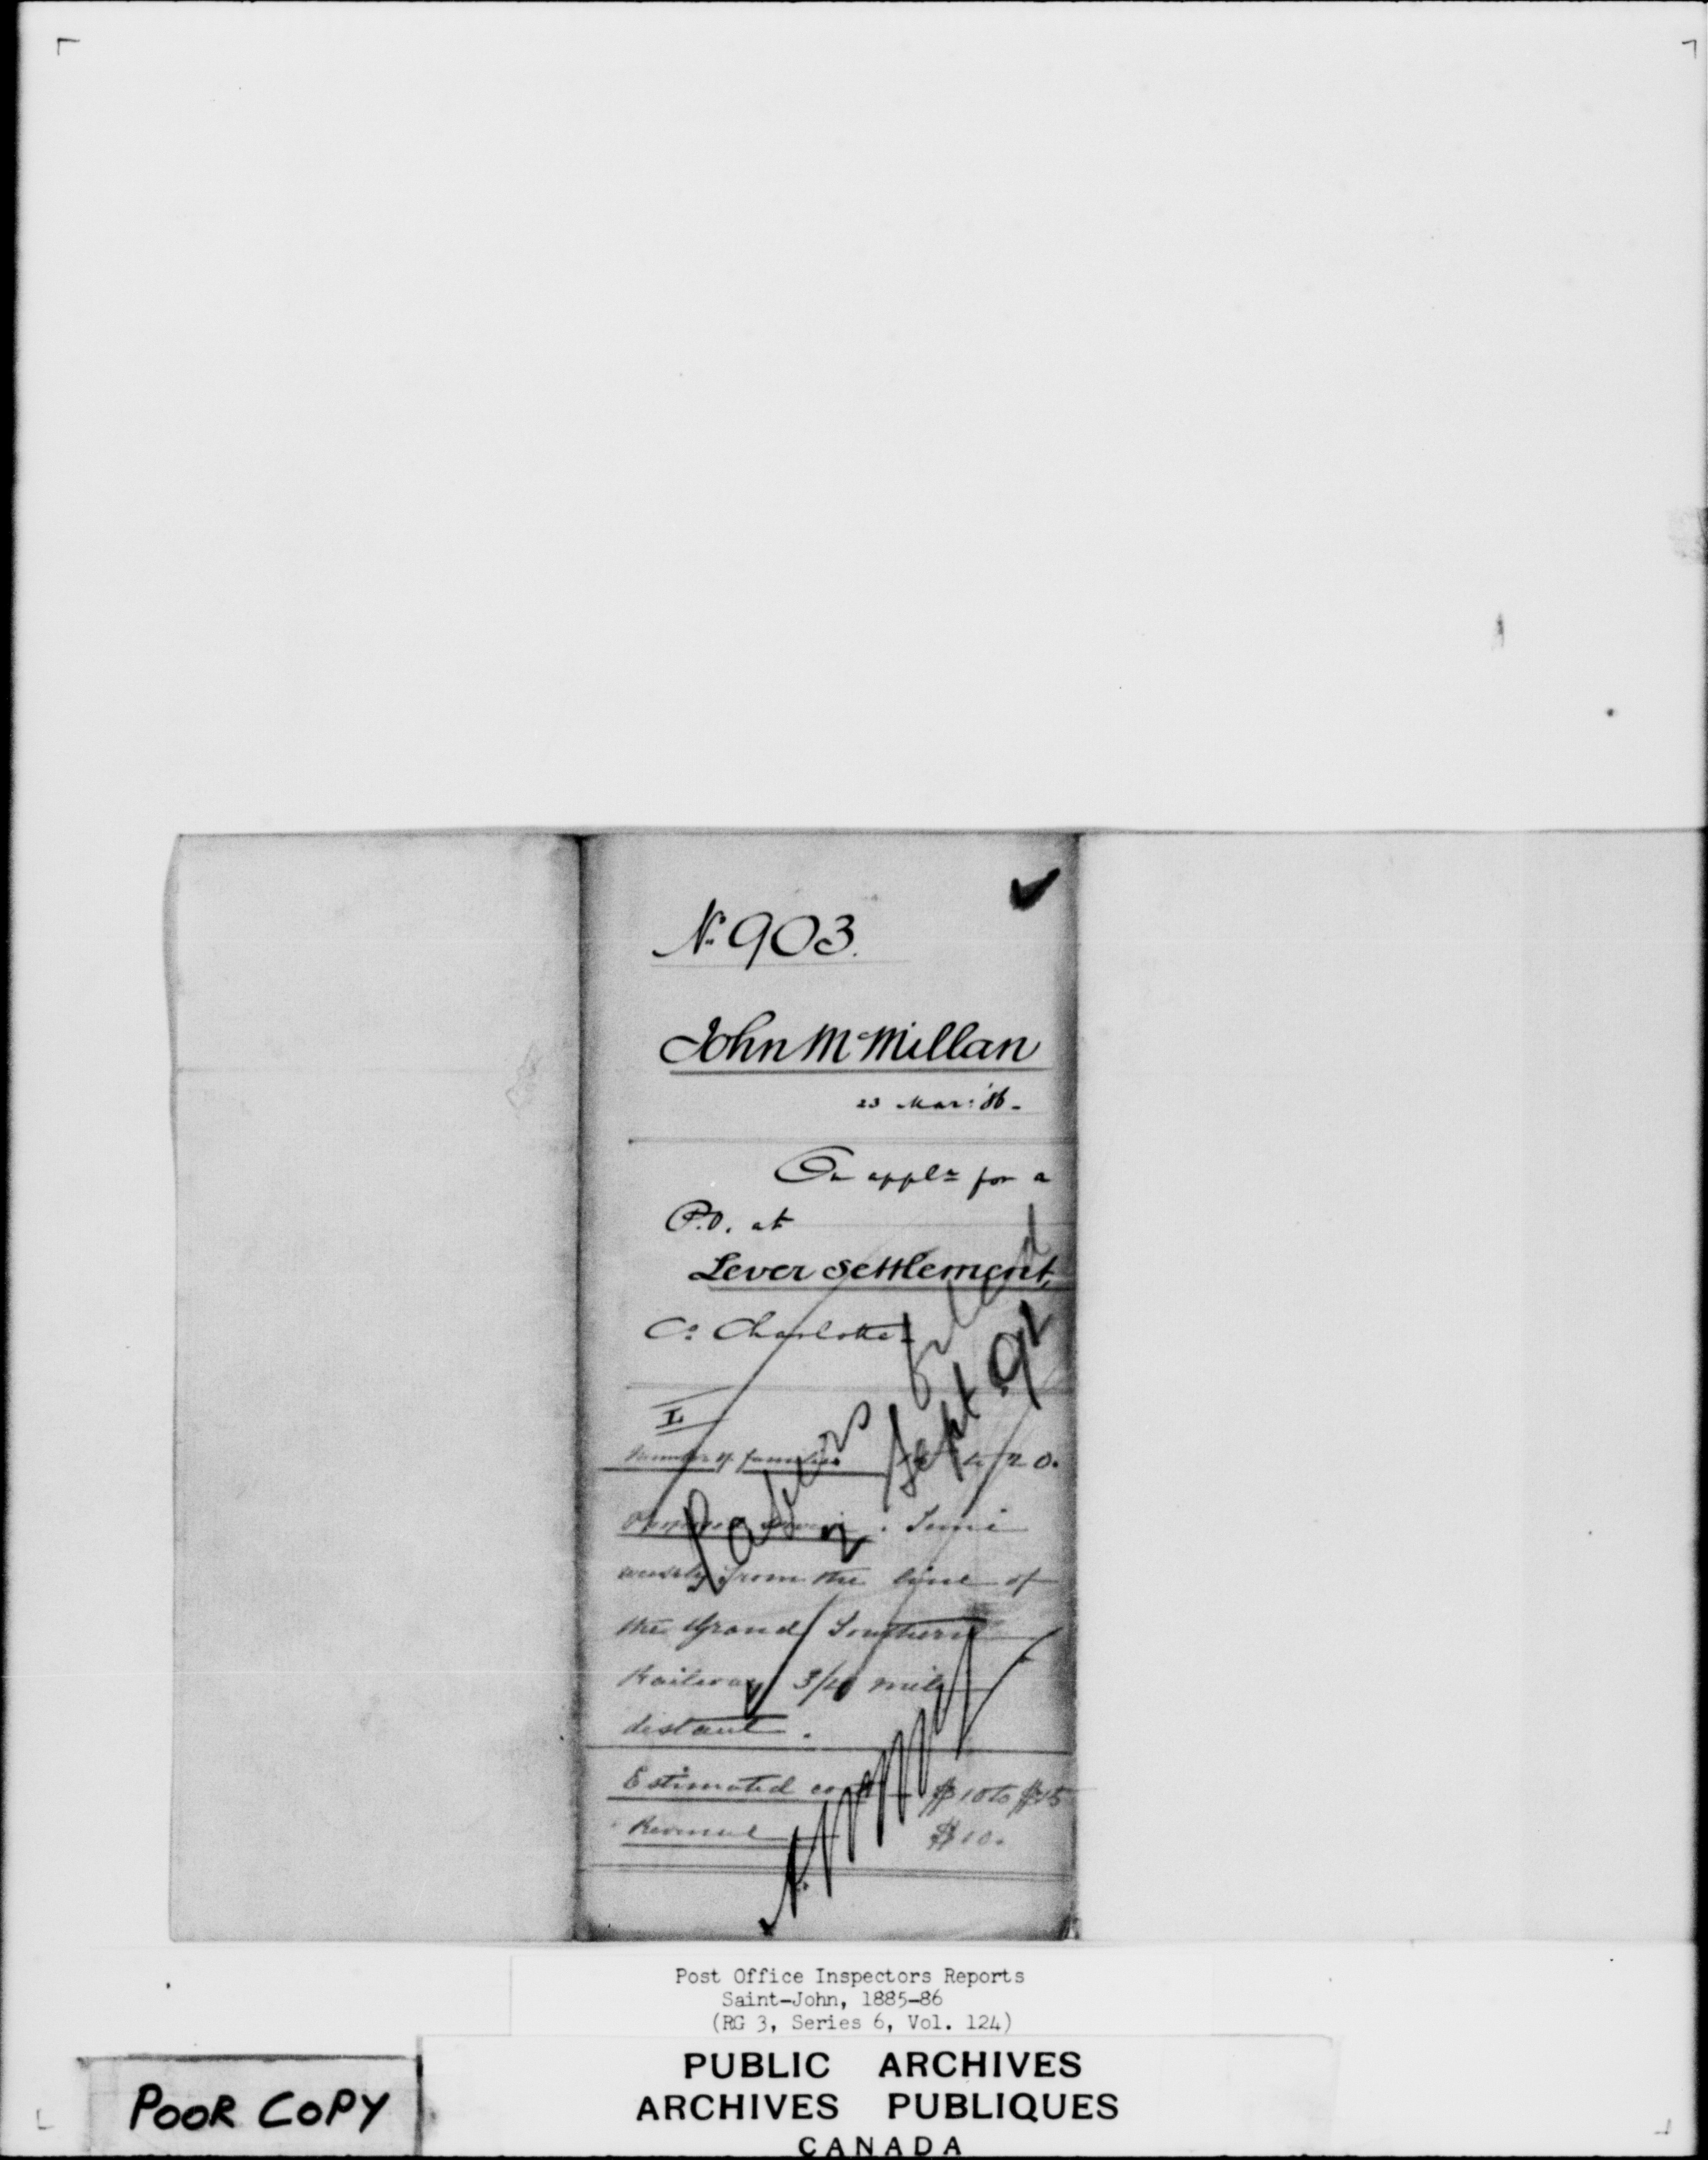 No. 903.
John McMillan
23 Mar: '86.
On appln for a
P.O. at
Lever Settlement,
Co. Charlotte
I
Number of families to 20.
Proposed service. Semi
weekly from the line of
the Grand Southern
Railway 3/4 mile
distant.
Estimated cost $10 to $15
Revenue $10.
Papers filed
Sept 91
Post Office Inspectors Reports
Saint-John, 1885-86
(RG 3, Series 6, Vol. 124)
PUBLIC ARCHIVES
ARCHIVES PUBLIQUES
CANADA
POOR COPY